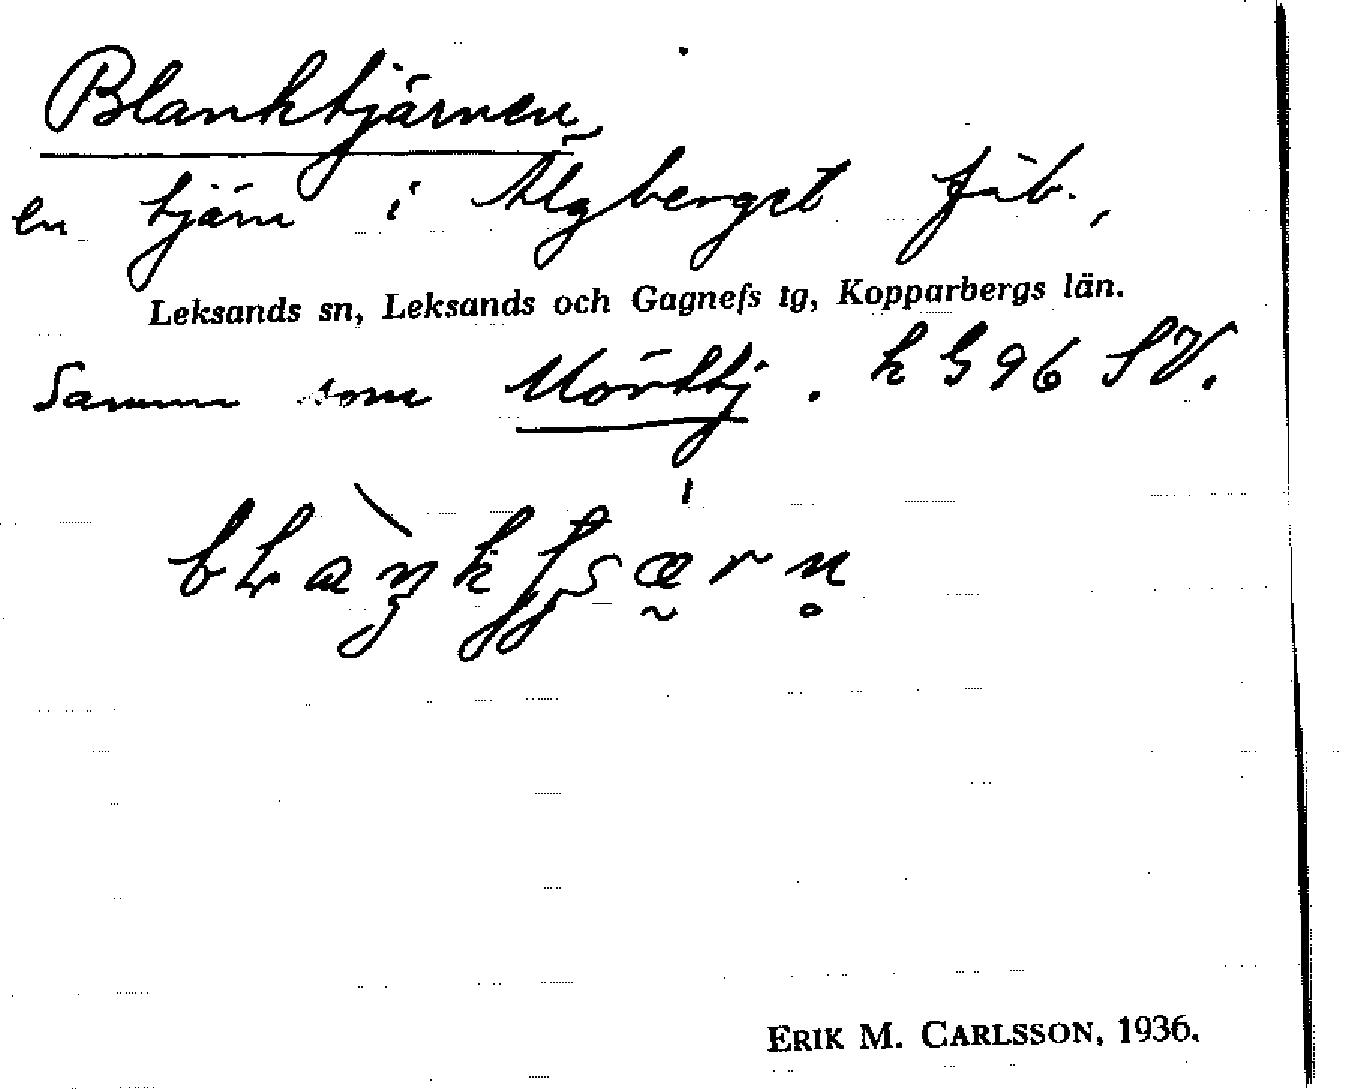 Blanktjärnen
en tjärn i Älgberget fäb.,
Leksands sn, Leksands och Gagnefs tg, Kopparbergs län.
Samma som Mörttj. k G 96 SV.
ERIK M. CARLSSON, 1936.